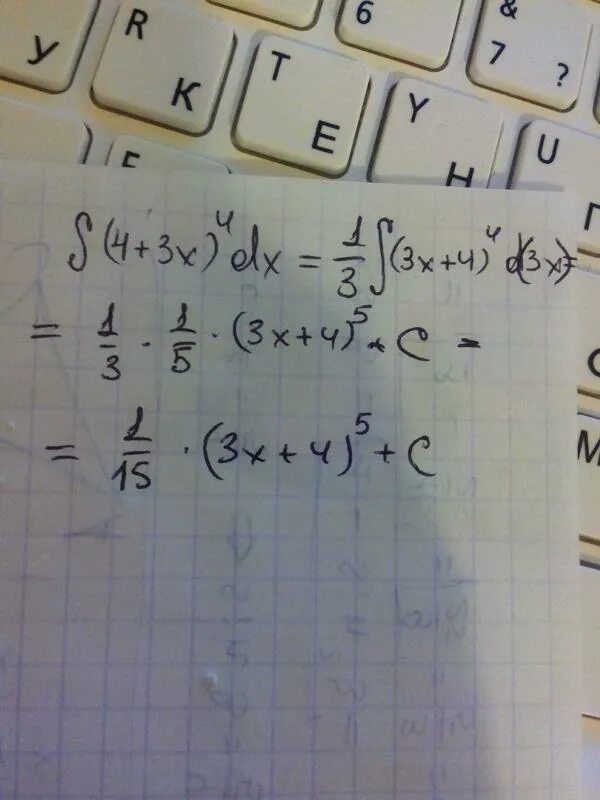 6 & 7 ?
У R К T Е Y Н U
∫(4+3x)⁴dx = 1/3 ∫(3x+4)⁴ d(3x)=
= 1/3 · 1/5 · (3x+4)⁵ + C =
= 1/15 · (3x+4)⁵ + C